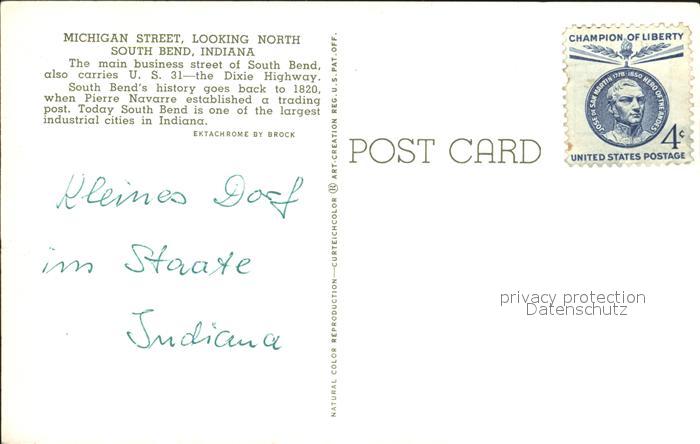 MICHIGAN STREET, LOOKING NORTH
SOUTH BEND, INDIANA
The main business street of South Bend,
also carries U. S. 31—the Dixie Highway.
South Bend's history goes back to 1820,
when Pierre Navarre established a trading
post. Today South Bend is one of the largest
industrial cities in Indiana.
EKTACHROME BY BROCK
Kleines Dorf
im Staate
Indiana
NATURAL COLOR REPRODUCTION—CURTEICHCOLOR ® ART-CREATION REG. U.S. PAT. OFF.
POST CARD
CHAMPION OF LIBERTY
JOSE DE SAN MARTIN 1778-1850 HERO OF THE ANDES
4c
UNITED STATES POSTAGE
privacy protection
Datenschutz